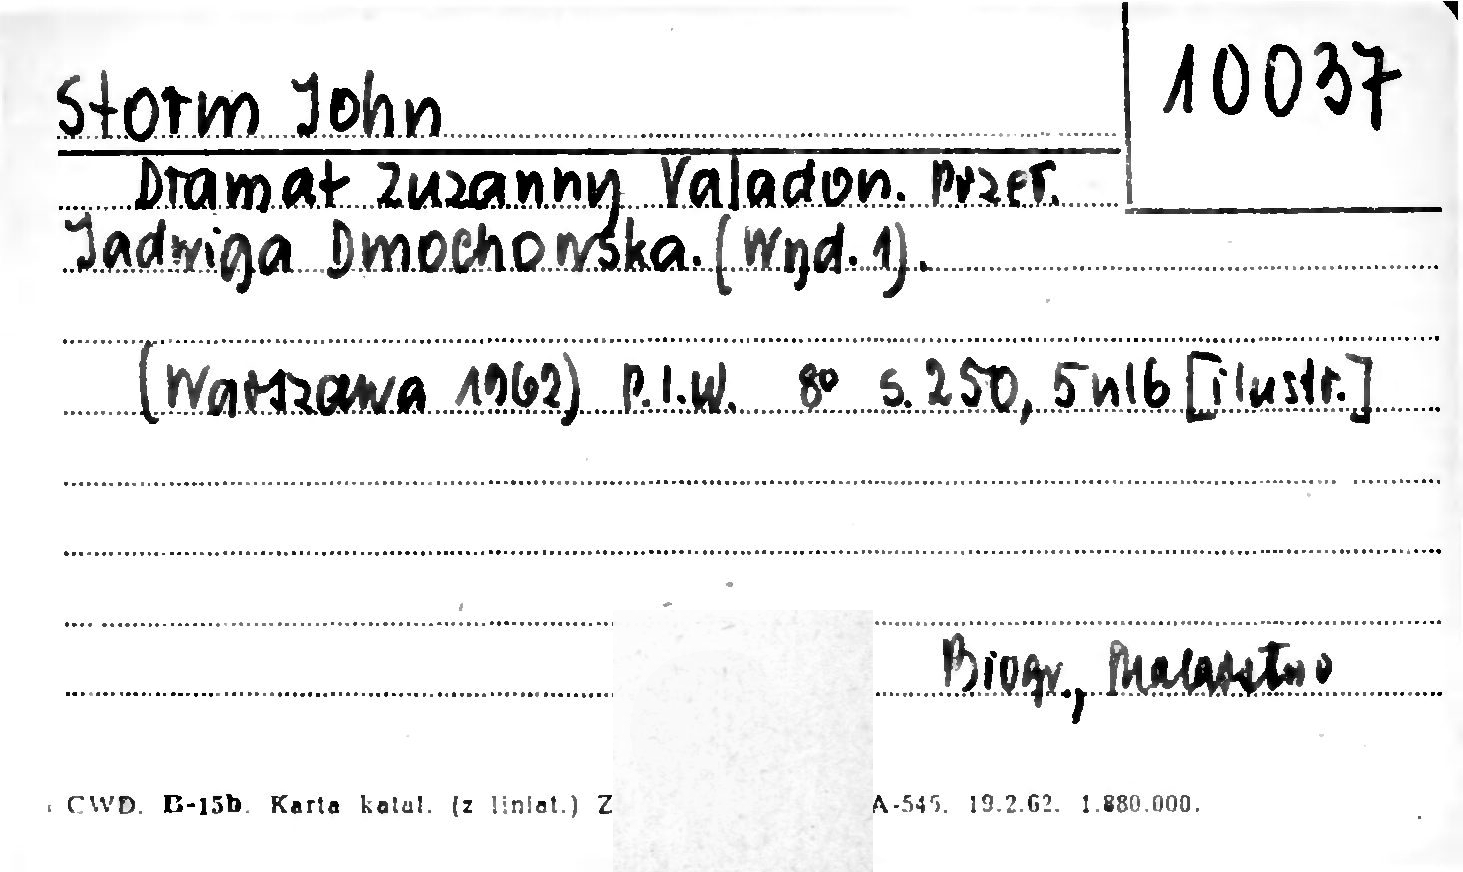 10037
Storm John
Dramat Zuzanny Valadon. Przeł.
Jadwiga Dmochowska. (Wyd. 1).
(Warszawa 1962) P.I.W. 8° s. 250, 5 nlb [ilustr.]
Biogr., Malarstwo
CWD. B-15b. Karta katal. (z liniat.) Z A-545. 19.2.62. 1.880.000.